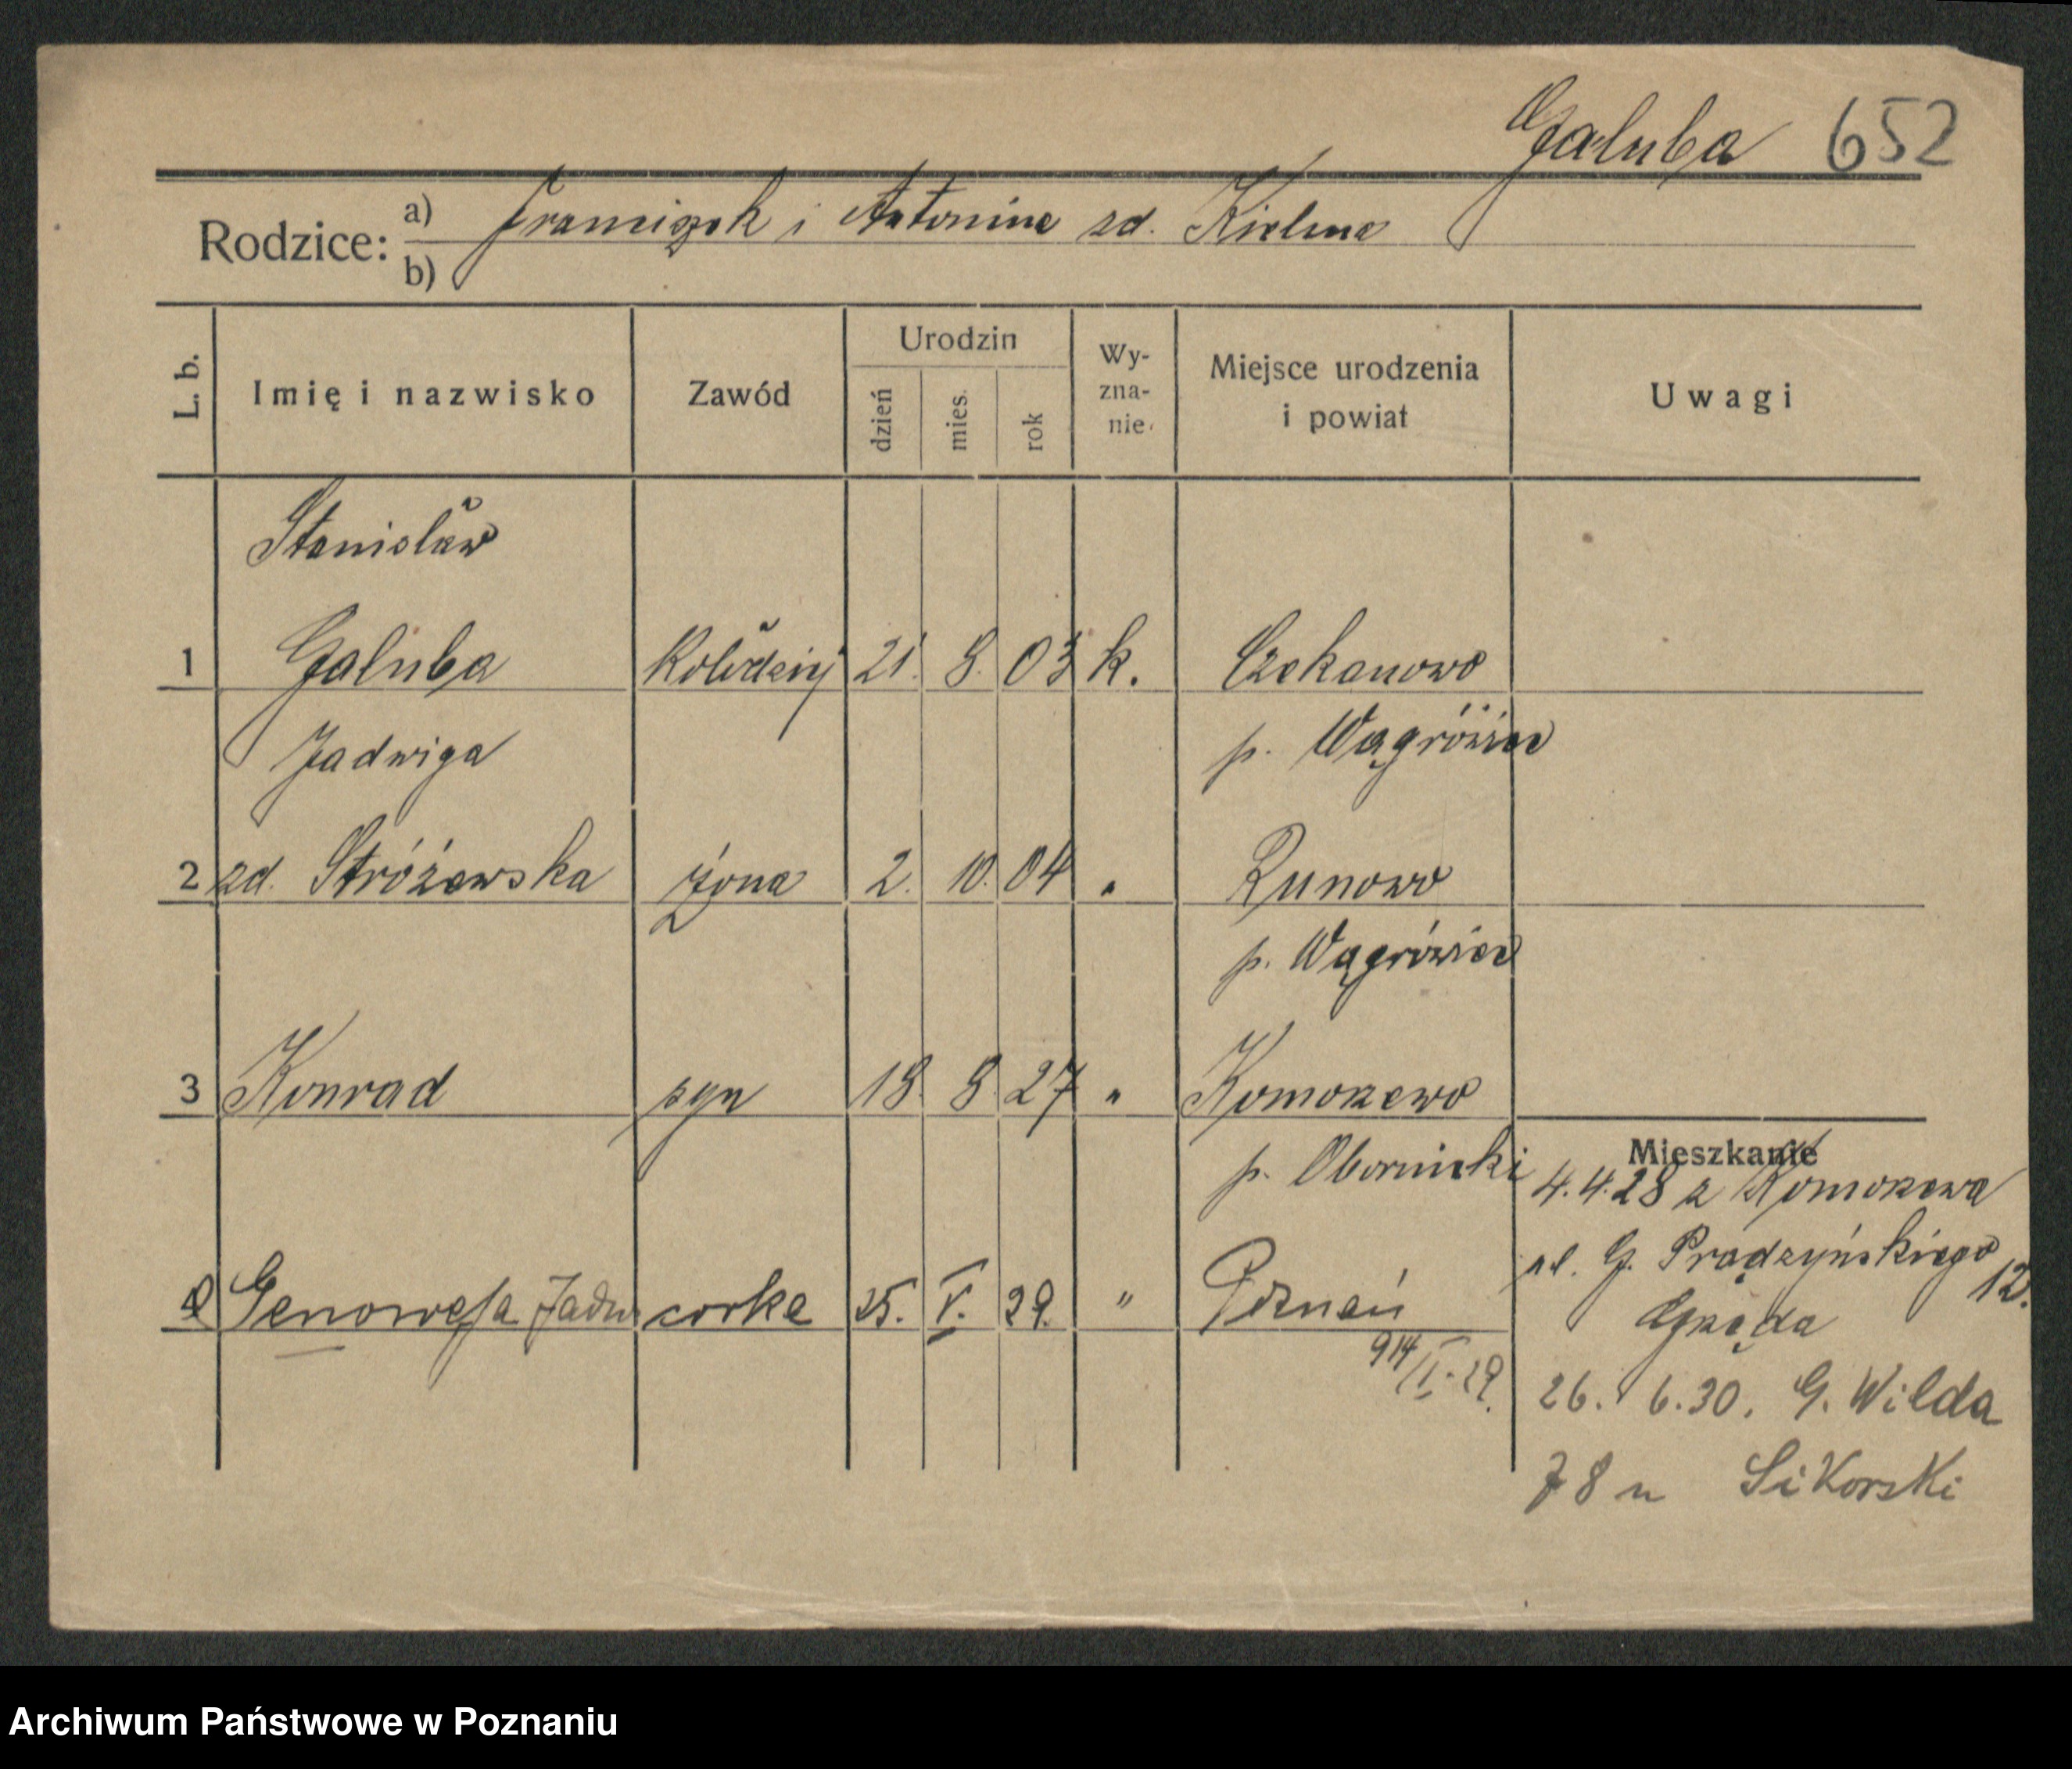 Galuba 652
Rodzice: a) Franciszek i Antonina zd. Kielma
b)
L. b. Imię i nazwisko Zawód Urodzin dzień mies. rok Wy-zna-nie Miejsce urodzenia i powiat Uwagi
Stanisław
1 Galuba Kołodziej 21. 8. 03 k. Czekanowo
Jadwiga p. Wągrówiec
2 zd. Stróżewska żona 2. 10. 04 " Runowo
p. Wągrówiec
3 Konrad syn 18. 8. 27 " Komorzewo
p. Obornicki
Genowefa Jadw corka 25. V. 29. " Poznań
914/ 29.
Mieszkanie
4.4.28 z Komorzewa
ul. G. Prądzyńskiego 12.
26. 6.30. G. Wilda
78 u Sikorski
Archiwum Państwowe w Poznaniu